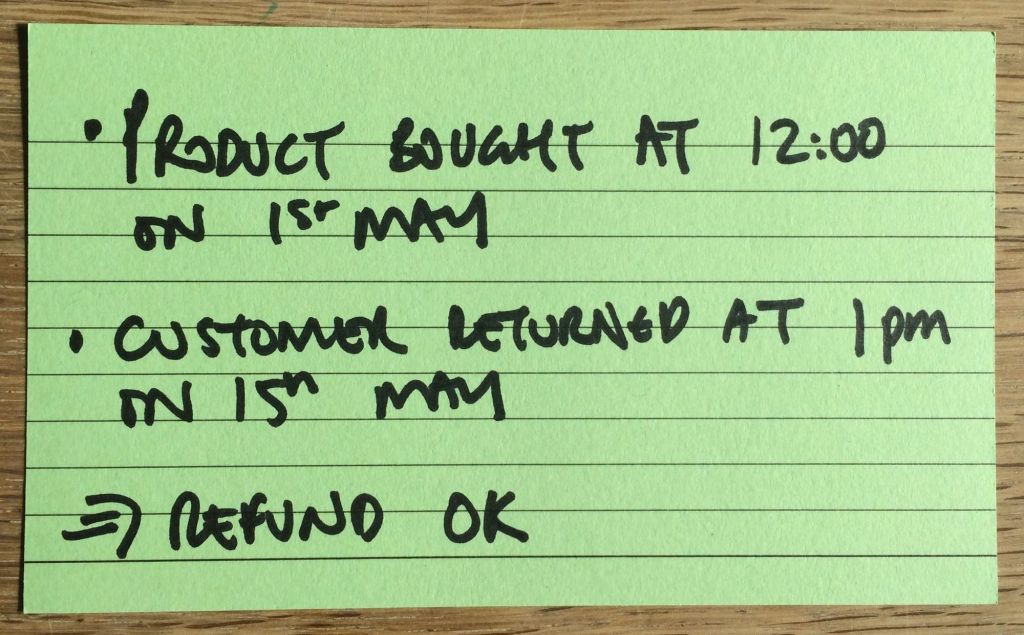 • PRODUCT BOUGHT AT 12:00
ON 1ST MAY
• CUSTOMER RETURNED AT 1pm
ON 15th MAY
⇒ REFUND OK